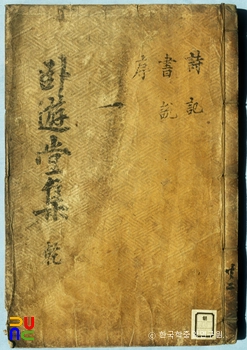 詩記
書說
序
一
臥遊堂集 乾
ⓒ 한국학중앙연구원